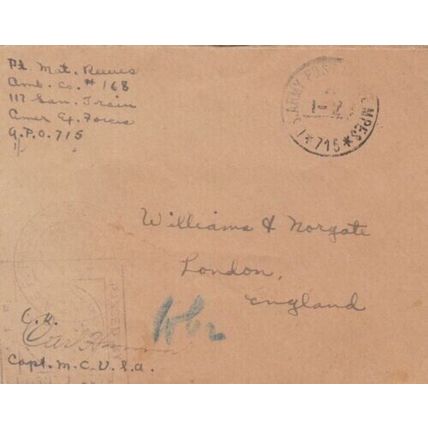 Pt. Mat. Reeves
Amb. Co. # 168
117 San. Train
Amer Ex. Forces
A.P.O. 715
ARMY POS
1-2
MPES
*715*
Williams & Norgate
London,
England
O.K.
Capt. M.C.U.S.A.